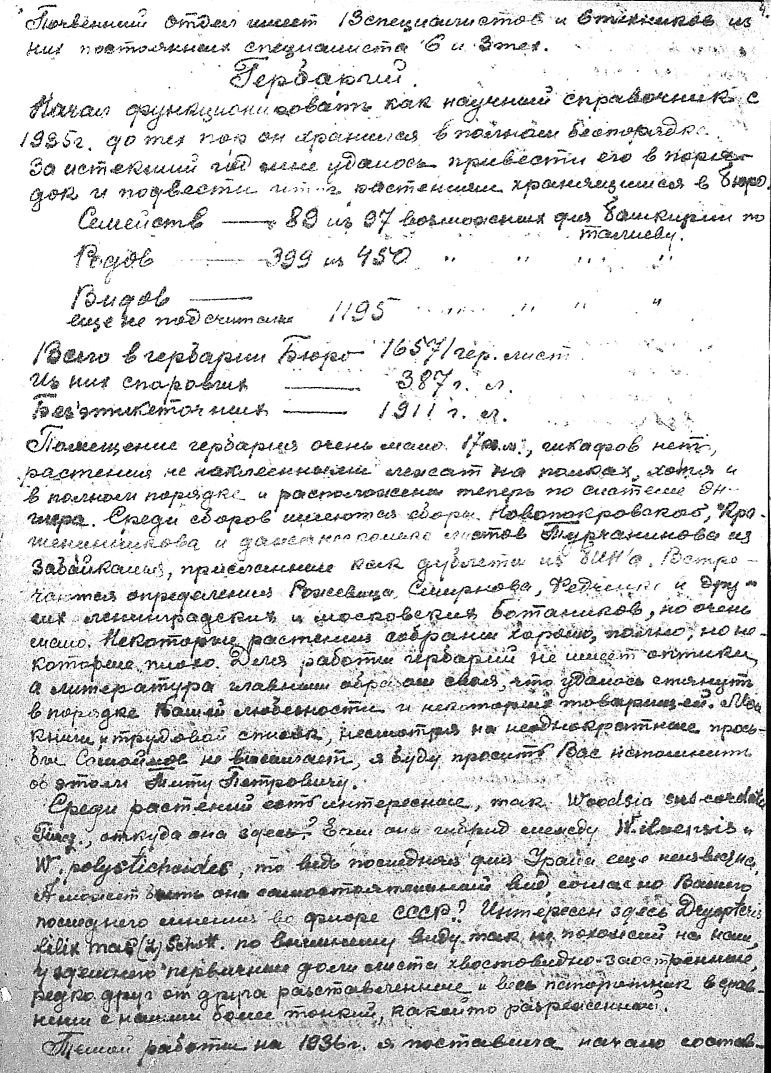 Почвенный отдел имеет 13 специалистов и 6 техников из
них постоянных специалиста 6 и 3 тех.
Гербарий.
Начал функционировать как научный справочник с
1935г. до тех пор он хранился в полном беспорядке.
За истекший год мне удалось привести его в поря-
док и подвести итог растениям хранящимся в Бюро.
Семейств — 89 из 97 возможных для Башкирии по
Талиеву.
Родов — 399 из 450 " " " "
Видов —
еще не подсчитаны 1195 " " " "
Всего в гербарии Бюро 16571 гер. лист.
Из них споровых — 387 г. л.
Без'этикеточных — 1911 г. л.
Помещение гербария очень мало 17 кв.м., шкафов нет,
растения не наклеенными лежат на полках, хотя и
в полном порядке и расположены теперь по системе Эн-
глера. Среди сборов имеются сборы Новопокровского, Кра-
шенинникова и даже несколько листов Турчанинова из
Забайкалия, присланные как дублеты из БИН'а. Встре-
чаются определения Рожевица, Смирнова, Федченко и дру-
гих ленинградских и московских ботаников, но очень
мало. Некоторые растения собраны хорошо, полно, но не-
которые плохо. Для работы гербарий не имеет оптики,
а литература главным образом своя, что удалось стянуть
в порядке Вашей любезности и некоторых товарищей. Мои
книги и трудовой список, несмотря на неоднократные прось-
бы не высылает, я буду просить Вас напомнить
об этом Титу Петровичу.
Среди растений есть интересные, так Woodsia subcordata
Turcz., откуда она здесь? Если она гибрид между W. ilvensis и
W. polystichoides, то ведь последняя для Урала еще неизвестна,
А может быть она самостоятельный вид, согласно Вашего
последнего мнения во флоре СССР? Интересен здесь Dryopteris
filix mas (L) Schott. по внешнему виду так не похожий на наш,
у здешнего первичные доли листа хвостовидно-заостренные,
редко друг от друга расставленные и весь папоротник в срав-
нении с нашим более тонкий, какой то разреженный.
Темой работы на 1936г. я поставила начало состав-